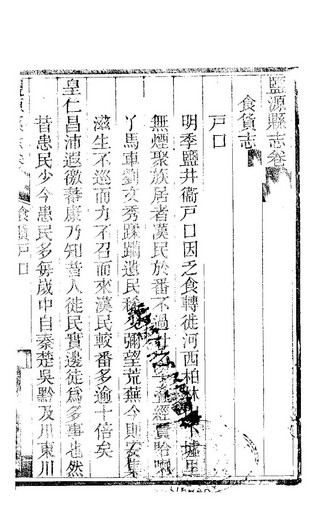 鹽源縣志卷
食貨志
戶口
明季鹽井衞戶口因乏食轉徙河西柏林 墟里
無煙聚族居者漢民於番不過 經賈哈喇
丫馬車劉文秀蹂躪遺民稀少彌望荒蕪今則安集
滋生不逕而方不召而來漢民較番多逾十倍矣
皇仁昌沛遐徼蕃康乃知昔人徙民實邊徒爲多事也然
昔患民少今患民多每歲中自秦楚吳黔及川東川
食貨戶口